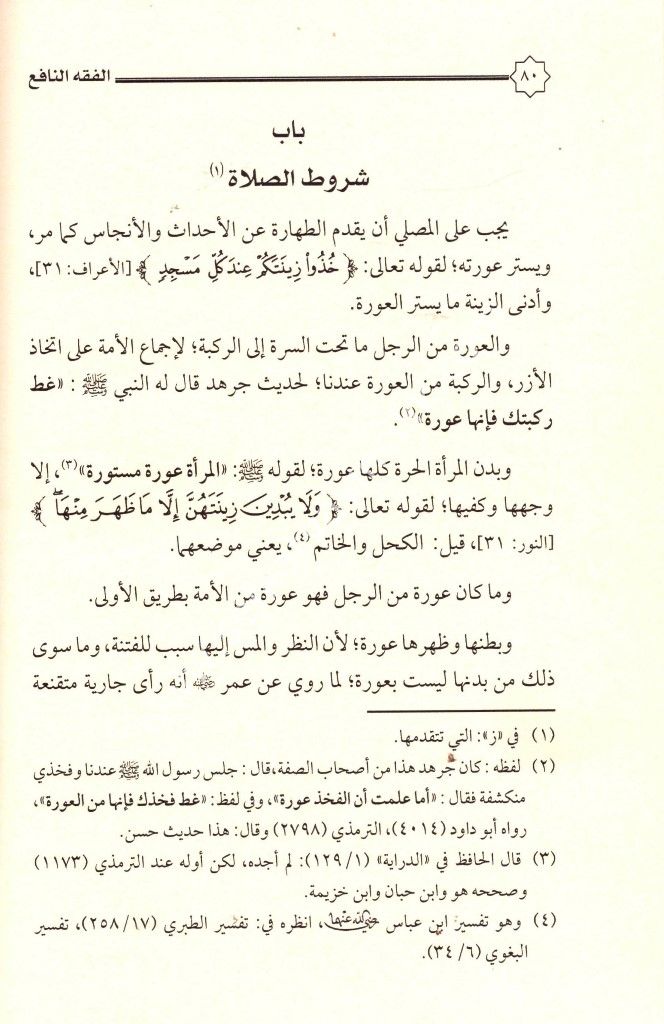 ٨٠ الفقه النافع
باب
شروط الصلاة (١)
يجب على المصلي أن يقدم الطهارة عن الأحداث والأنجاس كما مر،
ويستر عورته؛ لقوله تعالى: ﴿ خُذُوا زِينَتَكُمْ عِندَ كُلِّ مَسْجِدٍ ﴾ [الأعراف: ٣١]،
وأدنى الزينة ما يستر العورة.
والعورة من الرجل ما تحت السرة إلى الركبة؛ لإجماع الأمة على اتخاذ
الأزر، والركبة من العورة عندنا؛ لحديث جرهد قال له النبي ﷺ : «غط
ركبتك فإنها عورة»(٢).
وبدن المرأة الحرة كلها عورة؛ لقوله ﷺ: «المرأة عورة مستورة»(٣)، إلا
وجهها وكفيها؛ لقوله تعالى: ﴿ وَلَا يُبْدِينَ زِينَتَهُنَّ إِلَّا مَا ظَهَرَ مِنْهَا ﴾
[النور: ٣١]، قيل: الكحل والخاتم (٤)، يعني موضعهما.
وما كان عورة من الرجل فهو عورة من الأمة بطريق الأولى.
وبطنها وظهرها عورة؛ لأن النظر والمس إليها سبب للفتنة، وما سوى
ذلك من بدنها ليست بعورة؛ لما روي عن عمر رضي الله عنه أنه رأى جارية متقنعة
(١) في «ز»: التي تتقدمها.
(٢) لفظه: كان جرهد هذا من أصحاب الصفة، قال: جلس رسول الله ﷺ عندنا وفخذي
منكشفة فقال: «أما علمت أن الفخذ عورة»، وفي لفظ: «غط فخذك فإنها من العورة»،
رواه أبو داود (٤٠١٤)، الترمذي (٢٧٩٨) وقال: هذا حديث حسن.
(٣) قال الحافظ في «الدراية» (١/ ١٢٩): لم أجده، لكن أوله عند الترمذي (١١٧٣)
وصححه هو وابن حبان وابن خزيمة.
(٤) وهو تفسير ابن عباس رضي الله عنهما، انظره في: تفسير الطبري (١٧/ ٢٥٨)، تفسير
البغوي (٦/ ٣٤).